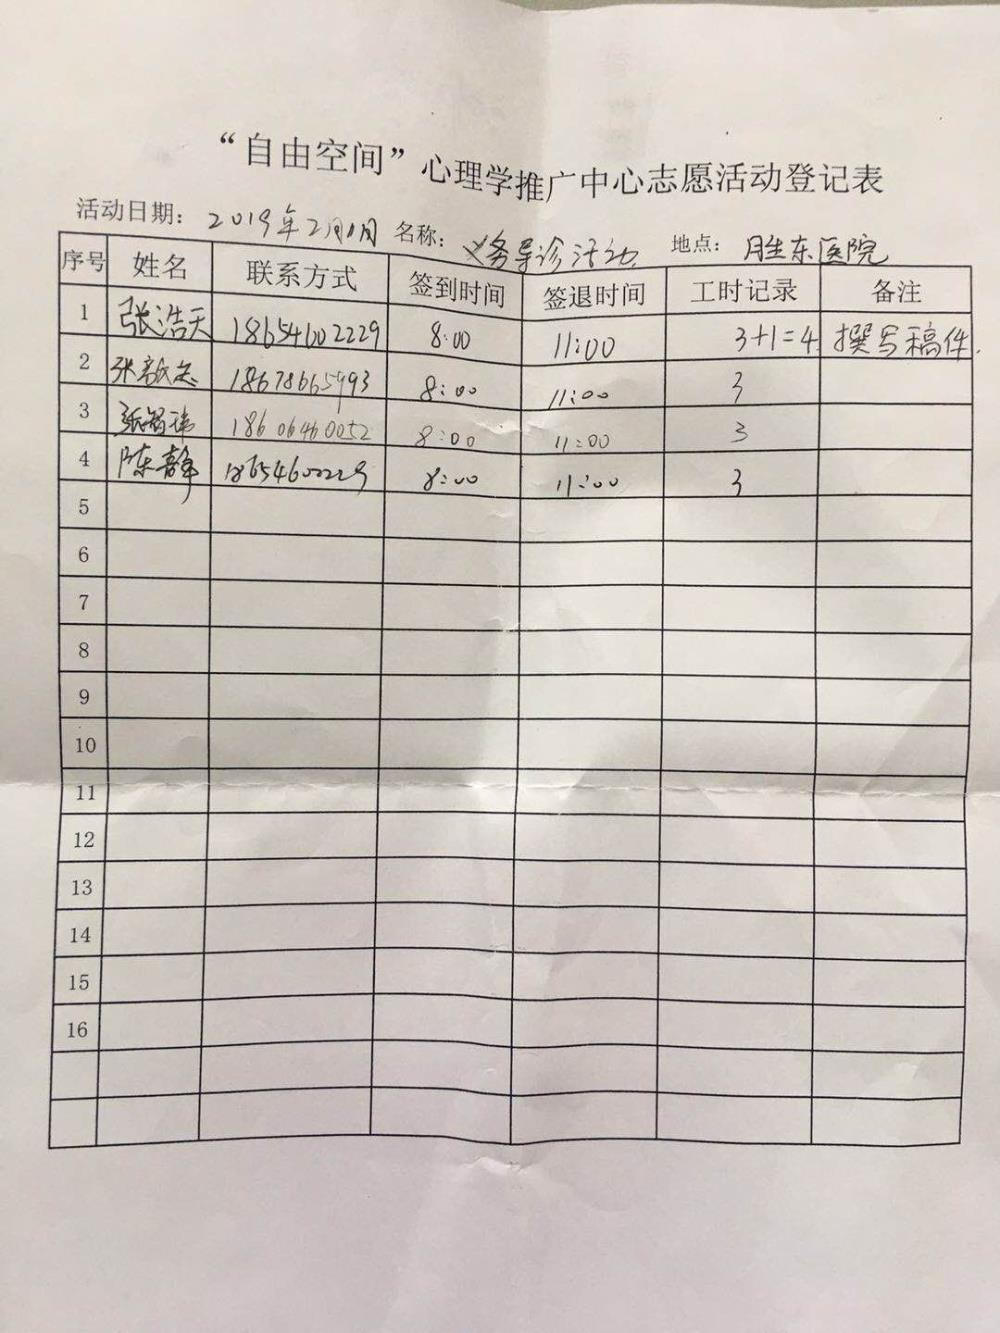 “自由空间”心理学推广中心志愿活动登记表
活动日期：2019年2月1日 名称：义务导诊活动 地点：胜东医院
序号 姓名 联系方式 签到时间 签退时间 工时记录 备注
1 张浩天 18654602229 8:00 11:00 3+1=4 撰写稿件.
2 18678665993 8:00 11:00 3
3 18606460052 8:00 11:00 3
4 陈静 18654600229 8:00 11:00 3
5
6
7
8
9
10
11
12
13
14
15
16